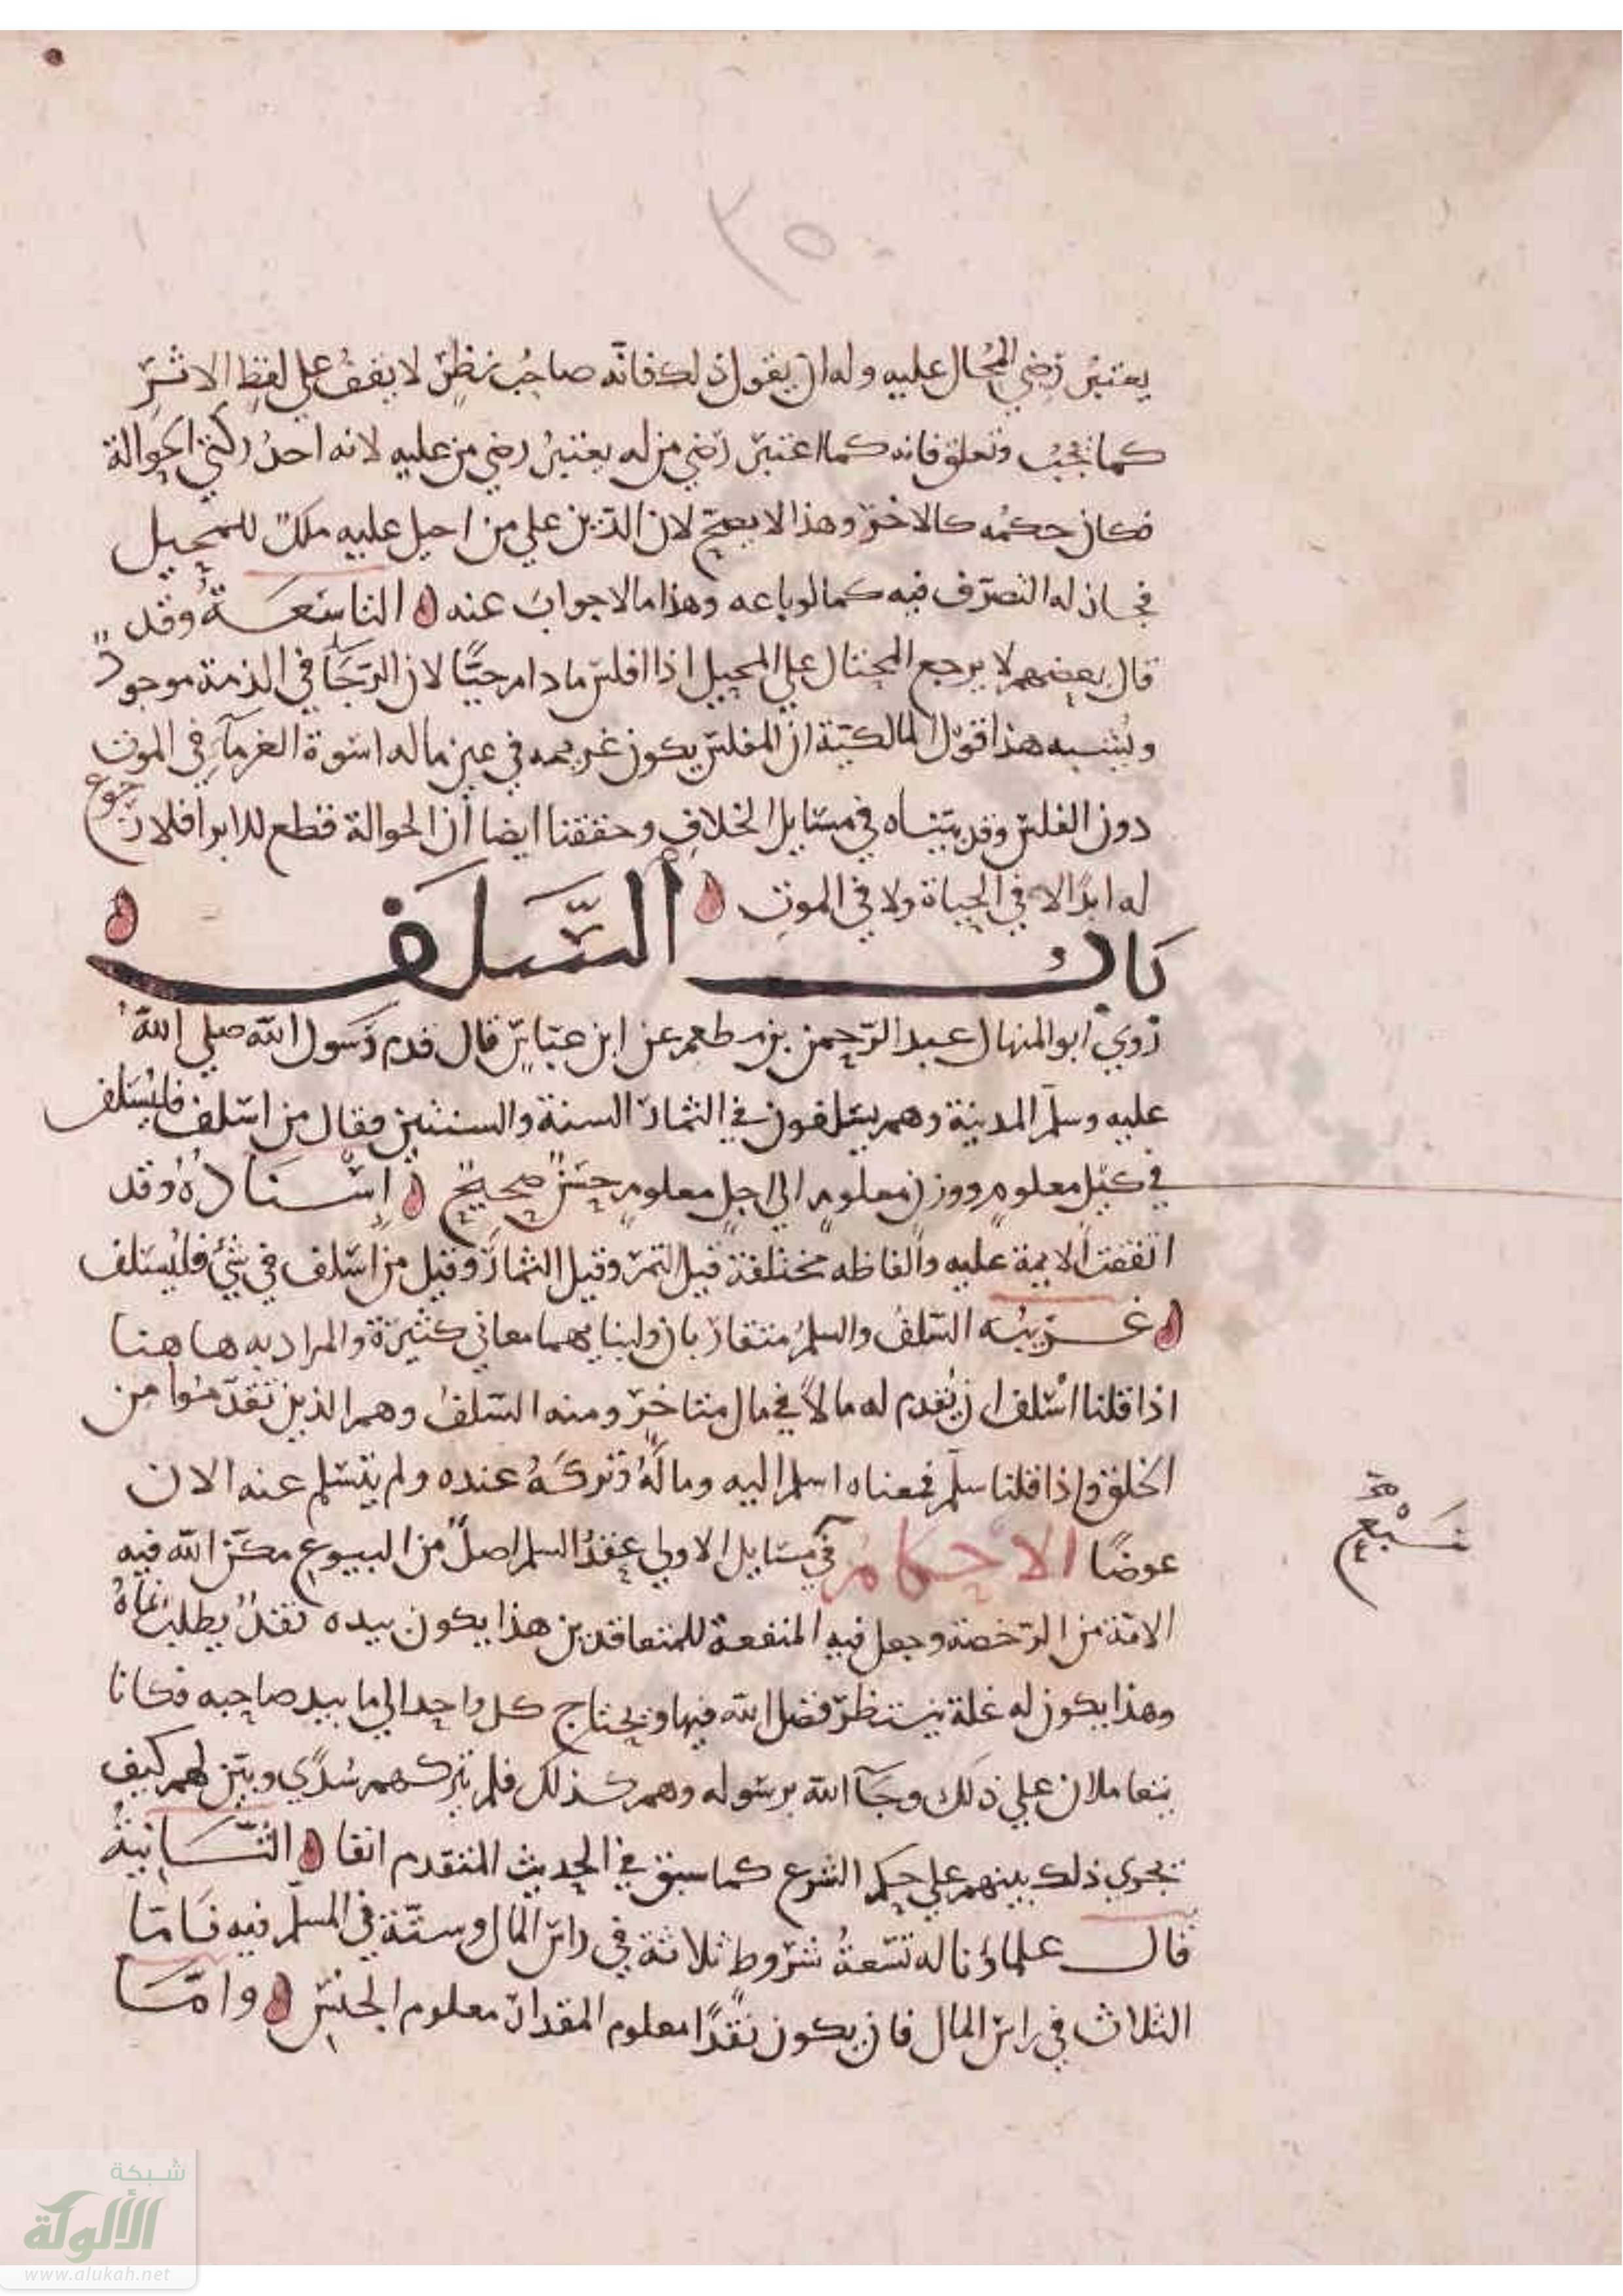 ٣٥٠
يعتبر رضي المحال عليه وله ان يقول ذلك فانه صاحب نظر لا يقف علي لفظ الاثر
كما يجب وتعلق فانه كما اعتبر رضي من له يعتبر رضي من عليه لانه احد ركني الحوالة
فكان حكمه كالاخر وهذا لا يصح لان الدين علي من احيل عليه ملك للمحيل
فجاز له التصرف فيه كما لو باعه وهذا ما لا جواب عنه التاسعة وقد
قال بعضهم لا يرجع المحتال علي المحيل اذا افلس ما دام حيًّا لان الرجَآ في الذمة موجود
ويشبه هذا قول المالكية ان المفلس يكون غريمه في عين ماله اسوة الغرمآء في الموت
دون الفلس وقد بيناه في مسايل الخلاف وحققنا ايضا أن الحوالة قطع للدابر فلا رجوع
له ابدًا لا في الحياة ولا في الموت
باب السَّلَف
روي ابو المنهال عبد الرحمن بن مطعم عن ابن عباس قال قدم رسول الله صلي الله
عليه وسلم المدينة وهم يسلفون في الثمار السنة والسنتين فقال من اسلف فليسلف
في كيل معلوم ووزن معلوم الي اجل معلوم حسن صحيح إسناده وقد
اتفقت الايمة عليه وألفاظه مختلفة قيل التمر وقيل الثمار وقيل من أسلف في شئ فليسلف
غريبه السلف والسلم متقاربان ولبنايهما معاني كثيرة والمراد به هاهنا
اذا قلنا اسلف ان يقدم له مالاً في مال متاخر ومنه السلف وهم الذين تقدموا من
الخلق واذا قلنا سلم فمعناه اسلم اليه وماله وتركه عنده ولم يتسلم عنه الان
عوضًا الاحكام في مسايل الاولي عقد السلم اصل من البيوع مكن الله فيه
الامة من الرخصة وجعل فيه المنفعة للمتعاقدين هذا يكون بيده نقد يطلب نماه
وهذا يكون له غلة ينتظر فضل الله فيها ويحتاج كل واحد الي ما بيد صاحبه فكانا
يتعاملان علي ذلك وجَآ الله برسوله وهم كذلك فلم يتركهم سدًي وبين لهم كيف
يجري ذلك بينهم علي حكم الشرع كما سبق في الحديث المتقدم انفا الثانية
قال علماؤنا له تسعة شروط ثلاثة في راس المال وستة في المسلم فيه فاما
الثلاث في راس المال فان يكون نقدًا معلوم المقدار معلوم الجنس واما
شبكة
الألوكة
www.alukah.net